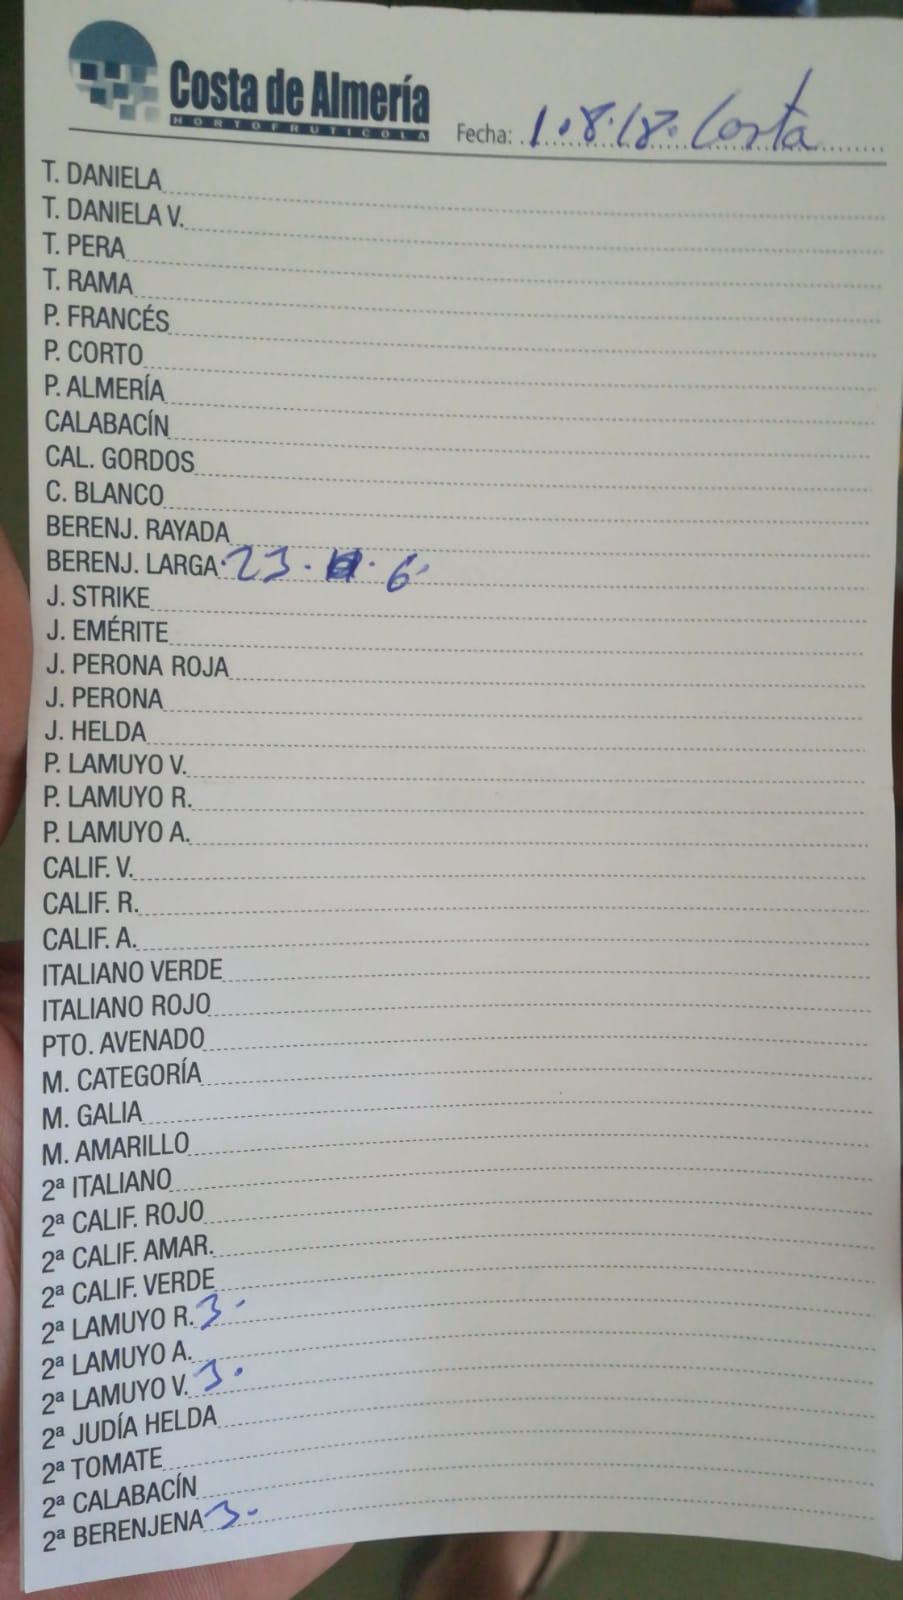 Costa de Almería
HORTOFRUTICOLA
Fecha: 1.8.18. Costa
T. DANIELA
T. DANIELA V.
T. PERA
T. RAMA
P. FRANCÉS
P. CORTO
P. ALMERÍA
CALABACÍN
CAL. GORDOS
C. BLANCO
BERENJ. RAYADA
BERENJ. LARGA 23. . 6
J. STRIKE
J. EMÉRITE
J. PERONA ROJA
J. PERONA
J. HELDA
P. LAMUYO V.
P. LAMUYO R.
P. LAMUYO A.
CALIF. V.
CALIF. R.
CALIF. A.
ITALIANO VERDE
ITALIANO ROJO
PTO. AVENADO
M. CATEGORÍA
M. GALIA
M. AMARILLO
2ª ITALIANO
2ª CALIF. ROJO
2ª CALIF. AMAR.
2ª CALIF. VERDE
2ª LAMUYO R. 3.
2ª LAMUYO A.
2ª LAMUYO V. 3.
2ª JUDÍA HELDA
2ª TOMATE
2ª CALABACÍN
2ª BERENJENA 3.